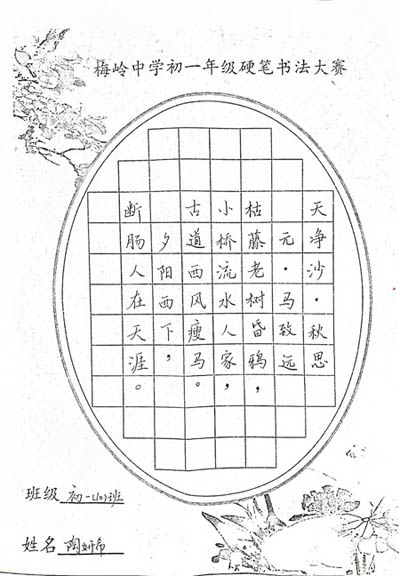 梅岭中学初一年级硬笔书法大赛
天净沙·秋思
元·马致远
枯藤老树昏鸦，
小桥流水人家，
古道西风瘦马。
夕阳西下，
断肠人在天涯。
班级 初一(10)班
姓名 陶